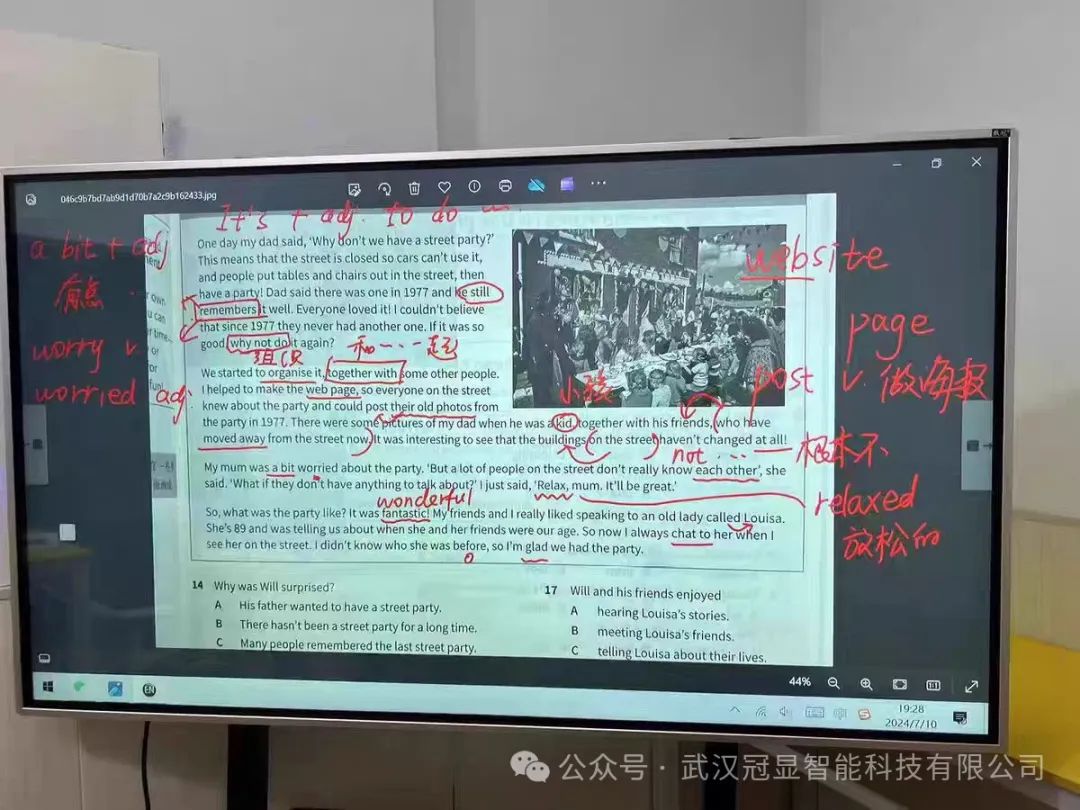 046c9b7bd7ab9d1d70b7a2c9b162433.jpg
It's + adj. to do
a bit + adj
有点
worry v
worried adj.
One day my dad said, 'Why don't we have a street party?'
This means that the street is closed so cars can't use it,
and people put tables and chairs out in the street, then
have a party! Dad said there was one in 1977 and he still
remembers it well. Everyone loved it! I couldn't believe
that since 1977 they never had another one. If it was so
good, why not do it again?
组织
和···一起
We started to organise it, together with some other people.
I helped to make the web page, so everyone on the street
knew about the party and could post their old photos from
the party in 1977. There were some pictures of my dad when he was a kid, together with his friends, who have
moved away from the street now. It was interesting to see that the buildings on the street haven't changed at all!
小孩
website
page
post v. 做海报
not ··· 根本不
My mum was a bit worried about the party. 'But a lot of people on the street don't really know each other', she
said. 'What if they don't have anything to talk about?' I just said, 'Relax, mum. It'll be great.'
wonderful
relaxed
放松的
So, what was the party like? It was fantastic! My friends and I really liked speaking to an old lady called Louisa.
She's 89 and was telling us about when she and her friends were our age. So now I always chat to her when I
see her on the street. I didn't know who she was before, so I'm glad we had the party.
14 Why was Will surprised?
A His father wanted to have a street party.
B There hasn't been a street party for a long time.
C Many people remembered the last street party.
17 Will and his friends enjoyed
A hearing Louisa's stories.
B meeting Louisa's friends.
C telling Louisa about their lives.
44%
1:1
EN
19:28
2024/7/10
公众号 · 武汉冠显智能科技有限公司